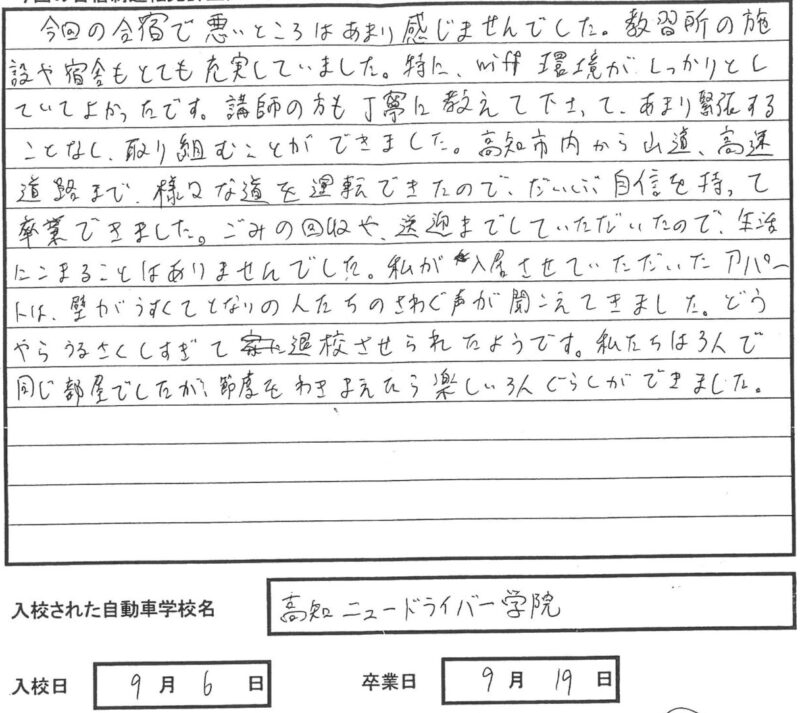 今回の合宿で悪いところはあまり感じませんでした。教習所の施
設や宿舎もとても充実していました。特に、wiff環境がしっかりとし
ていてよかったです。講師の方も丁寧に教えて下さって、あまり緊張する
ことなし、取り組むことができました。高知市内から山道、高速
道路まで、様々な道を運転できたので、だいぶ自信を持って
卒業できました。ごみの回収や、送迎までしていただいたので、生活
にこまることはありませんでした。私が入居させていただいたアパー
トは、壁がうすくてとなりの人たちのさわぐ声が聞こえてきました。どう
やらうるさくしすぎて退校させられたようです。私たちは3人で
同じ部屋でしたが、節度をわきまえたら楽しい3人ぐらしができました。
入校された自動車学校名 高知ニュードライバー学院
入校日 9月6日 卒業日 9月19日